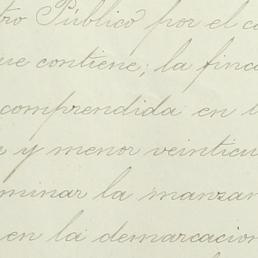 tro Público por el co
ue contiene; la finca
comprendida en l
y menor veinticu
minar la manzan
en la demarcacion